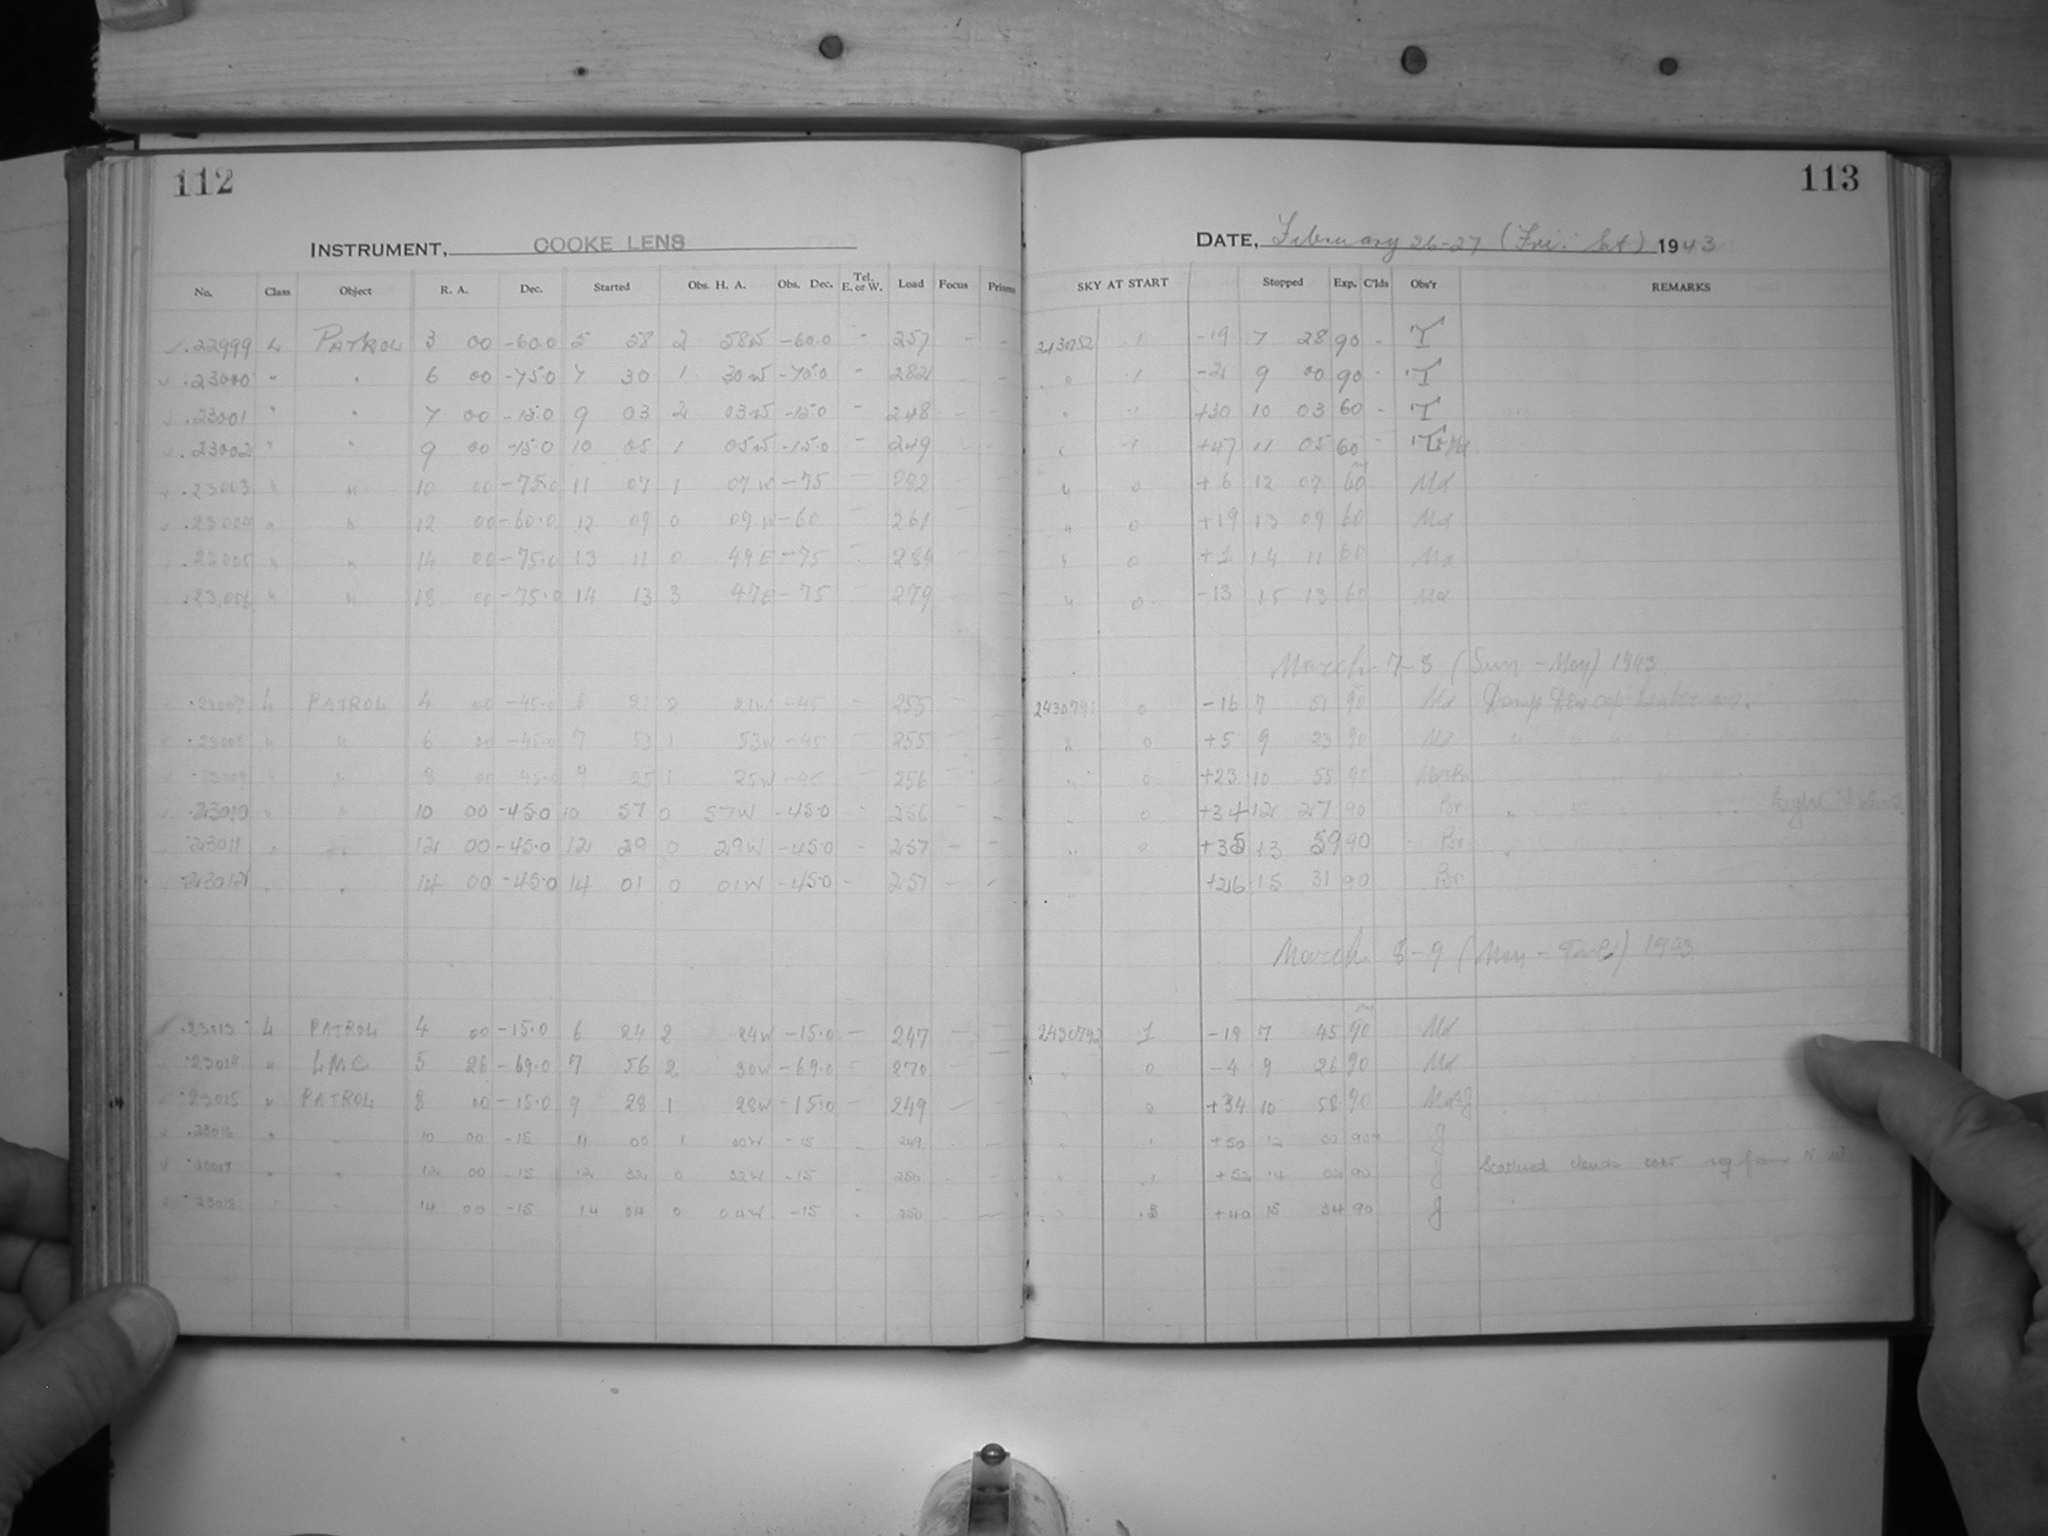 112
INSTRUMENT, COOKE LENS
No. Class Object R. A. Dec. Started Obs. H. A. Obs. Dec. Tel. E. or W. Load Focus Prisms
22999 L PATROL 3 00 -60.0 5 58 2 58W -60.0 - 257 - -
.23000 " " 6 00 -75.0 7 30 1 30W -75.0 - 282 - -
.23001 " " 7 00 -15.0 9 03 2 03W -15.0 - 248 - -
.23002 " " 9 00 -15.0 10 05 1 05W -15.0 - 249
.23003 " " 10 00 -75.0 11 07 1 07W -75 - 282
.23004 " " 12 00 -60.0 12 09 0 09W -60 - 261
.23005 " " 14 00 -75.0 13 11 0 49E -75 - 284
.23,006 " " 18 00 -75.0 14 13 3 47E -75 279
.23007 L PATROL 4 00 -45.0 6 21 2 21W -45 - 255 -
.23008 " " 6 00 -45.0 7 53 1 53W -45 - 255 -
.23009 " " 8 00 -45.0 9 25 1 25W -45 - 256 -
.23010 " " 10 00 -45.0 10 57 0 57W -45.0 - 256 - -
.23011 " " 12 00 -45.0 12 29 0 29W -45.0 - 257 - -
.23012 " " 14 00 -45.0 14 01 0 01W -45.0 - 257 - -
.23013 L PATROL 4 00 -15.0 6 24 2 24W -15.0 - 247 - -
.23014 " LMC 5 26 -69.0 7 56 2 30W -69.0 - 270 - -
.23015 " PATROL 8 00 -15.0 9 28 1 28W -15.0 - 249 - -
.23016 " " 10 00 -15 11 00 1 00W -15 249
.23017 " " 12 00 -15 12 32 0 32W -15 250
.23018 " " 14 00 -15 14 04 0 04W -15 250
113
DATE, February 26-27 (Fri. Sat) 1943
SKY AT START Stopped Exp. C'lds Obs'r REMARKS
2430782 1 -19 7 28 90 - T
" 1 -21 9 00 90 - T
" 1 +30 10 03 60 - T
" 1 +47 11 05 60 -
" 0 +6 12 07 60 Md
" 0 +19 13 09 60 Md
" 0 +1 14 11 60 Md
" 0 -13 15 13 60 Md
March 7-8 (Sun - Mon) 1943
2430791 0 -16 7 51 90 Md Damp Dew cap heater on.
" 0 +5 9 23 90 Md " " " "
" 0 +23 10 55 90
" 0 +34 12 27 90 Br
" 0 +35 13 59 90 Br
" +26 15 31 90 Br
March 8-9 (Mon - Tues) 1943
2430792 1 -19 7 45 90 Md
" 0 -4 9 26 90 Md
" 0 +34 10 58 90
" 1 +50 12 30 90 J
" 1 +52 14 02 90 J Scattered clouds over
" .3 +40 15 34 90 J